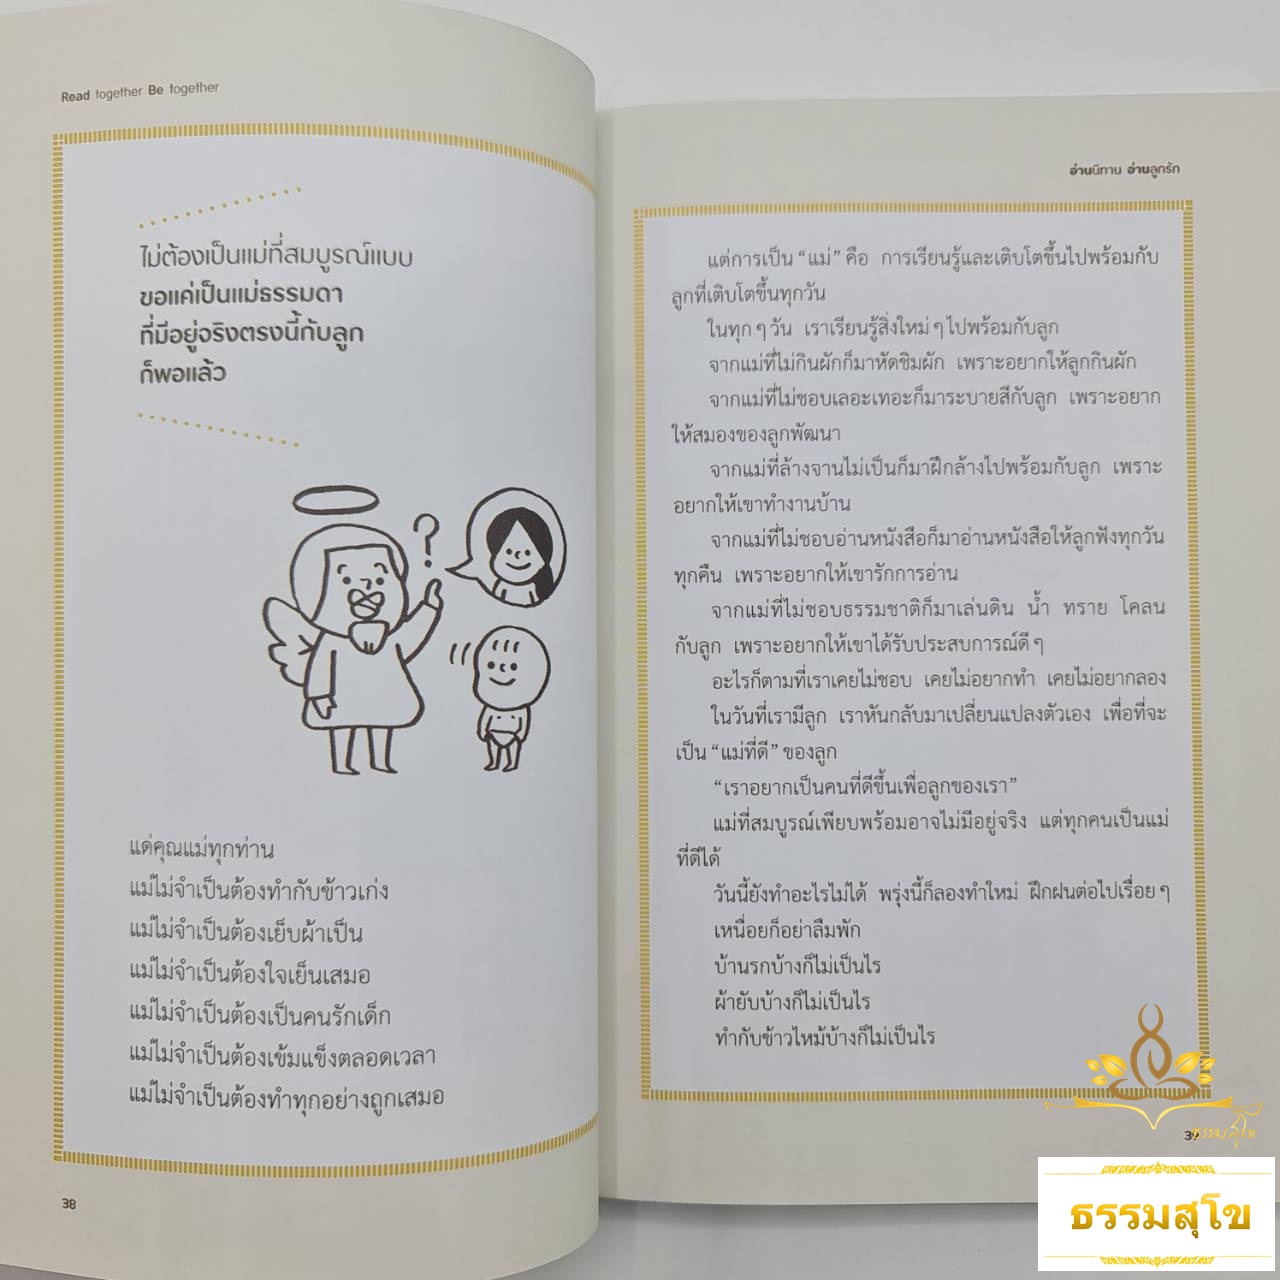 Read together Be together
ไม่ต้องเป็นแม่ที่สมบูรณ์แบบ
ขอแค่เป็นแม่ธรรมดา
ที่มีอยู่จริงตรงนี้กับลูก
ก็พอแล้ว
?
แด่คุณแม่ทุกท่าน
แม่ไม่จำเป็นต้องทำกับข้าวเก่ง
แม่ไม่จำเป็นต้องเย็บผ้าเป็น
แม่ไม่จำเป็นต้องใจเย็นเสมอ
แม่ไม่จำเป็นต้องเป็นคนรักเด็ก
แม่ไม่จำเป็นต้องเข้มแข็งตลอดเวลา
แม่ไม่จำเป็นต้องทำทุกอย่างถูกเสมอ
38
อ่านนิทาน อ่านลูกรัก
แต่การเป็น “แม่” คือ การเรียนรู้และเติบโตขึ้นไปพร้อมกับ
ลูกที่เติบโตขึ้นทุกวัน
ในทุก ๆ วัน เราเรียนรู้สิ่งใหม่ ๆ ไปพร้อมกับลูก
จากแม่ที่ไม่กินผักก็มาหัดชิมผัก เพราะอยากให้ลูกกินผัก
จากแม่ที่ไม่ชอบเลอะเทอะก็มาระบายสีกับลูก เพราะอยาก
ให้สมองของลูกพัฒนา
จากแม่ที่ล้างจานไม่เป็นก็มาฝึกล้างไปพร้อมกับลูก เพราะ
อยากให้เขาทำงานบ้าน
จากแม่ที่ไม่ชอบอ่านหนังสือก็มาอ่านหนังสือให้ลูกฟังทุกวัน
ทุกคืน เพราะอยากให้เขารักการอ่าน
จากแม่ที่ไม่ชอบธรรมชาติก็มาเล่นดิน น้ำ ทราย โคลน
กับลูก เพราะอยากให้เขาได้รับประสบการณ์ดี ๆ
อะไรก็ตามที่เราเคยไม่ชอบ เคยไม่อยากทำ เคยไม่อยากลอง
ในวันที่เรามีลูก เราหันกลับมาเปลี่ยนแปลงตัวเอง เพื่อที่จะ
เป็น “แม่ที่ดี” ของลูก
“เราอยากเป็นคนที่ดีขึ้นเพื่อลูกของเรา”
แม่ที่สมบูรณ์เพียบพร้อมอาจไม่มีอยู่จริง แต่ทุกคนเป็นแม่
ที่ดีได้
วันนี้ยังทำอะไรไม่ได้ พรุ่งนี้ก็ลองทำใหม่ ฝึกฝนต่อไปเรื่อย ๆ
เหนื่อยก็อย่าลืมพัก
บ้านรกบ้างก็ไม่เป็นไร
ผ้ายับบ้างก็ไม่เป็นไร
ทำกับข้าวไหม้บ้างก็ไม่เป็นไร
39
ธรรมสุโข
ธรรมสุโข